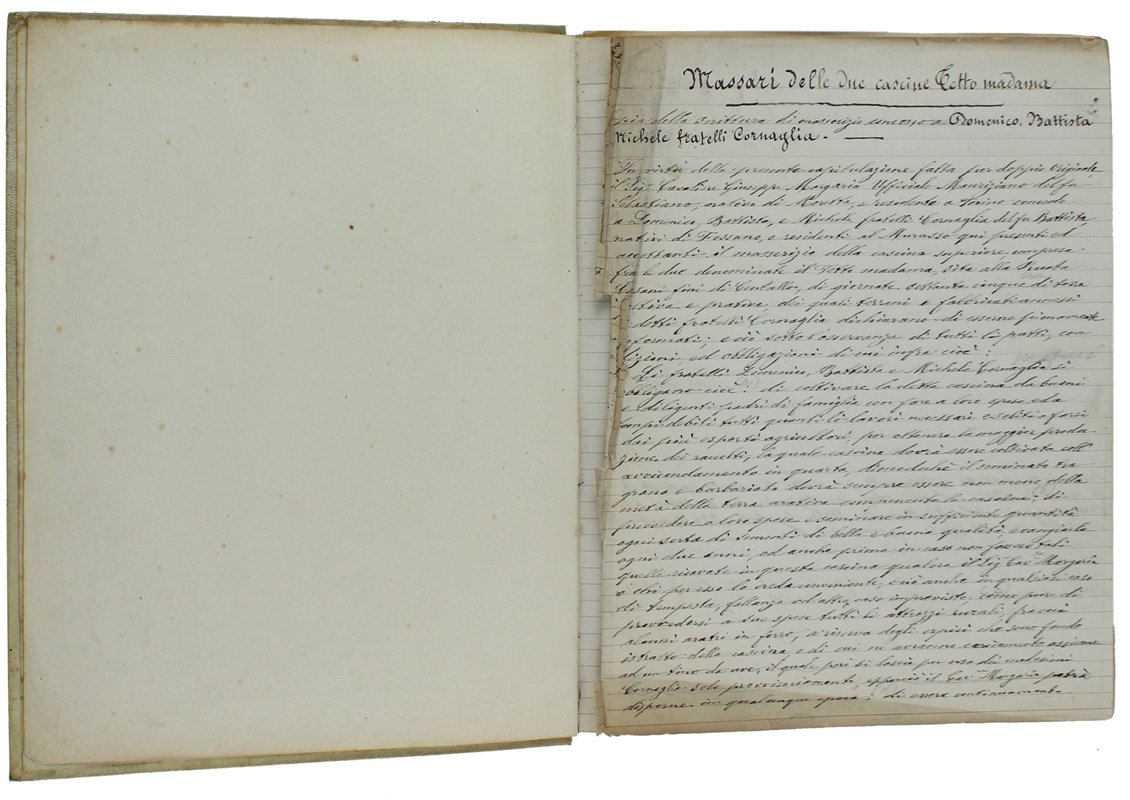 Massari delle due cascine Tetto madama
pia della scrittura di masserizio concesso a Domenico, Battista
Michele fratelli Cornaglia. -
In virtù della presente capitulazione fatta per doppio originale
il Sigr Cavaliere Giuseppe Margaria Ufficiale Mauriziano del fu
Sebastiano, nativo di Moretta, e residente a Torino concede
a Domenico, Battista, e Michele fratelli Cornaglia del fu Battista
nativi di Fossano, e residenti al Murasso qui presenti ed
accettanti il masserizio della cascina superiore, compresa
fra le due denominate il Tetto madama, sita alla
fini di Centallo, di giornate settanta cinque di terra
e prativa dei quasi terreni e fabbricati annessi
detti fratelli Cornaglia dichiarano di esserne pienamente
informati; e ciò sotto l'osservanza di tutti li patti, con
dizioni ed obbligazioni di cui infra cioè:
Li fratelli Domenico, Battista e Michele Cornaglia si
obbligano cioè: di coltivare la detta cascina da buoni
e diligenti padri di famiglia con fare a loro spese ed a
tempi debiti tutti quanti li lavori necessari e soliti a farsi
dai più esperti agricoltori, per ottenere la maggior produ
zione dei raccolti, la quale cascina dovrà essere coltivata coll'
avvicendamento in quarta, dimodochè il seminato tra
grano e barbariato dovrà sempre essere non meno della
metà della terra arativa componente la cascina; di
provvedere a loro spese e seminare in sufficiente quantità
ogni sorta di sementi di bella e buona qualità, e cangiarle
ogni due anni, od anche prima in caso non fossero tali
quelle ricavate in questa cascina qualora il Sigr Cavre Margaria
o chi per esso lo creda conveniente, e ciò anche in qualsiasi caso
di tempesta, fallanza od altro caso imprevisto, come pure di
provvedersi a sue spese tutti li attrezzi rurali,
alcuni aratri in ferro, a riserva degli erpici che sono fondo
istratto della cascina, e di cui ne avranno
ad un tino da uve, il quale però si lascia per uso dei medesimi
Cornaglia solo provvisoriamente, epperciò il Cavre Margaria potrà
disporne in qualunque epoca; di essere continuamente